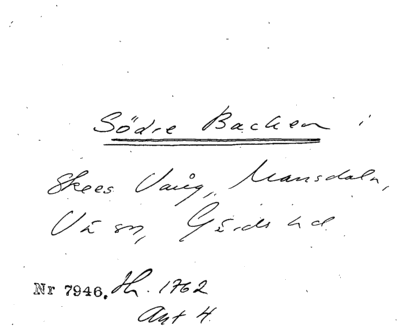 Södre Backen i
Skees Vång, Mansdala,
Väsn, Gärds hd
Nr 7946. Jh. 1762
Akt 4.